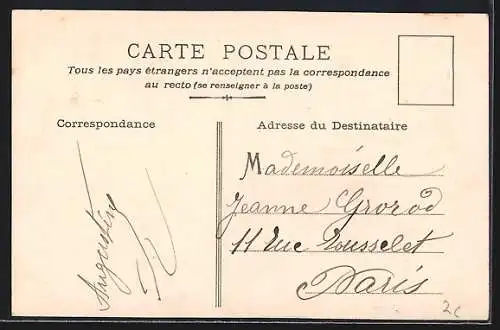 CARTE POSTALE
Tous les pays étrangers n'acceptent pas la correspondance
au recto (se renseigner à la poste)
Correspondance
Adresse du Destinataire
Augustine
Mademoiselle
Jeanne Grorod
11 Rue Rousselet
Paris
2c